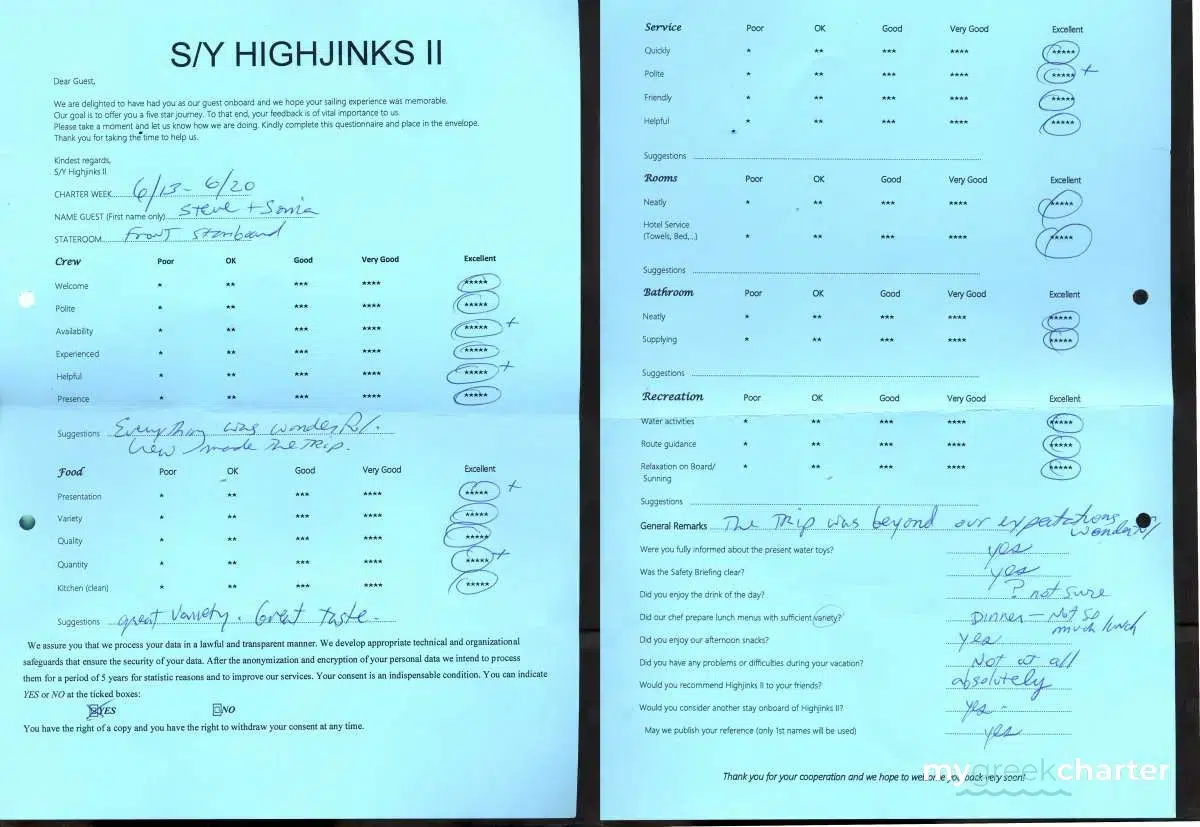 S/Y HIGHJINKS II
Dear Guest,
We are delighted to have had you as our guest onboard and we hope your sailing experience was memorable.
Our goal is to offer you a five star journey. To that end, your feedback is of vital importance to us.
Please take a moment and let us know how we are doing. Kindly complete this questionnaire and place in the envelope.
Thank you for taking the time to help us.
Kindest regards,
S/Y Highjinks II
CHARTER WEEK 6/13 - 6/20
NAME GUEST (First name only) Steve + Sonia
STATEROOM Front Starboard
Crew Poor OK Good Very Good Excellent
Welcome * ** *** **** *****
Polite * ** *** **** *****
Availability * ** *** **** ***** +
Experienced * ** *** **** *****
Helpful * ** *** **** ***** +
Presence * ** *** **** *****
Suggestions Everything was wonderful.
Crew made the trip.
Food Poor OK Good Very Good Excellent
Presentation * ** *** **** ***** +
Variety * ** *** **** *****
Quality * ** *** **** *****
Quantity * ** *** **** ***** +
Kitchen (clean) * ** *** **** *****
Suggestions great variety. Great taste.
We assure you that we process your data in a lawful and transparent manner. We develop appropriate technical and organizational
safeguards that ensure the security of your data. After the anonymization and encryption of your personal data we intend to process
them for a period of 5 years for statistic reasons and to improve our services. Your consent is an indispensable condition. You can indicate
YES or NO at the ticked boxes:
YES NO
You have the right of a copy and you have the right to withdraw your consent at any time.
Service Poor OK Good Very Good Excellent
Quickly * ** *** **** *****
Polite * ** *** **** ***** +
Friendly * ** *** **** *****
Helpful * ** *** **** *****
Suggestions
Rooms Poor OK Good Very Good Excellent
Neatly * ** *** **** *****
Hotel Service
(Towels, Bed,...) * ** *** **** *****
Suggestions
Bathroom Poor OK Good Very Good Excellent
Neatly * ** *** **** *****
Supplying * ** *** **** *****
Suggestions
Recreation Poor OK Good Very Good Excellent
Water activities * ** *** **** *****
Route guidance * ** *** **** *****
Relaxation on Board/
Sunning * ** *** **** *****
Suggestions
General Remarks The Trip was beyond our expetations
wonderful
Were you fully informed about the present water toys? yes
Was the Safety Briefing clear? yes
Did you enjoy the drink of the day? ? not sure
Did our chef prepare lunch menus with sufficient variety? Dinner - Not so
much lunch
Did you enjoy our afternoon snacks? yes
Did you have any problems or difficulties during your vacation? Not at all
Would you recommend Highjinks II to your friends? absolutely
Would you consider another stay onboard of Highjinks II? yes -
May we publish your reference (only 1st names will be used) yes
Thank you for your cooperation and we hope to welcome you back very soon!
mygreekcharter